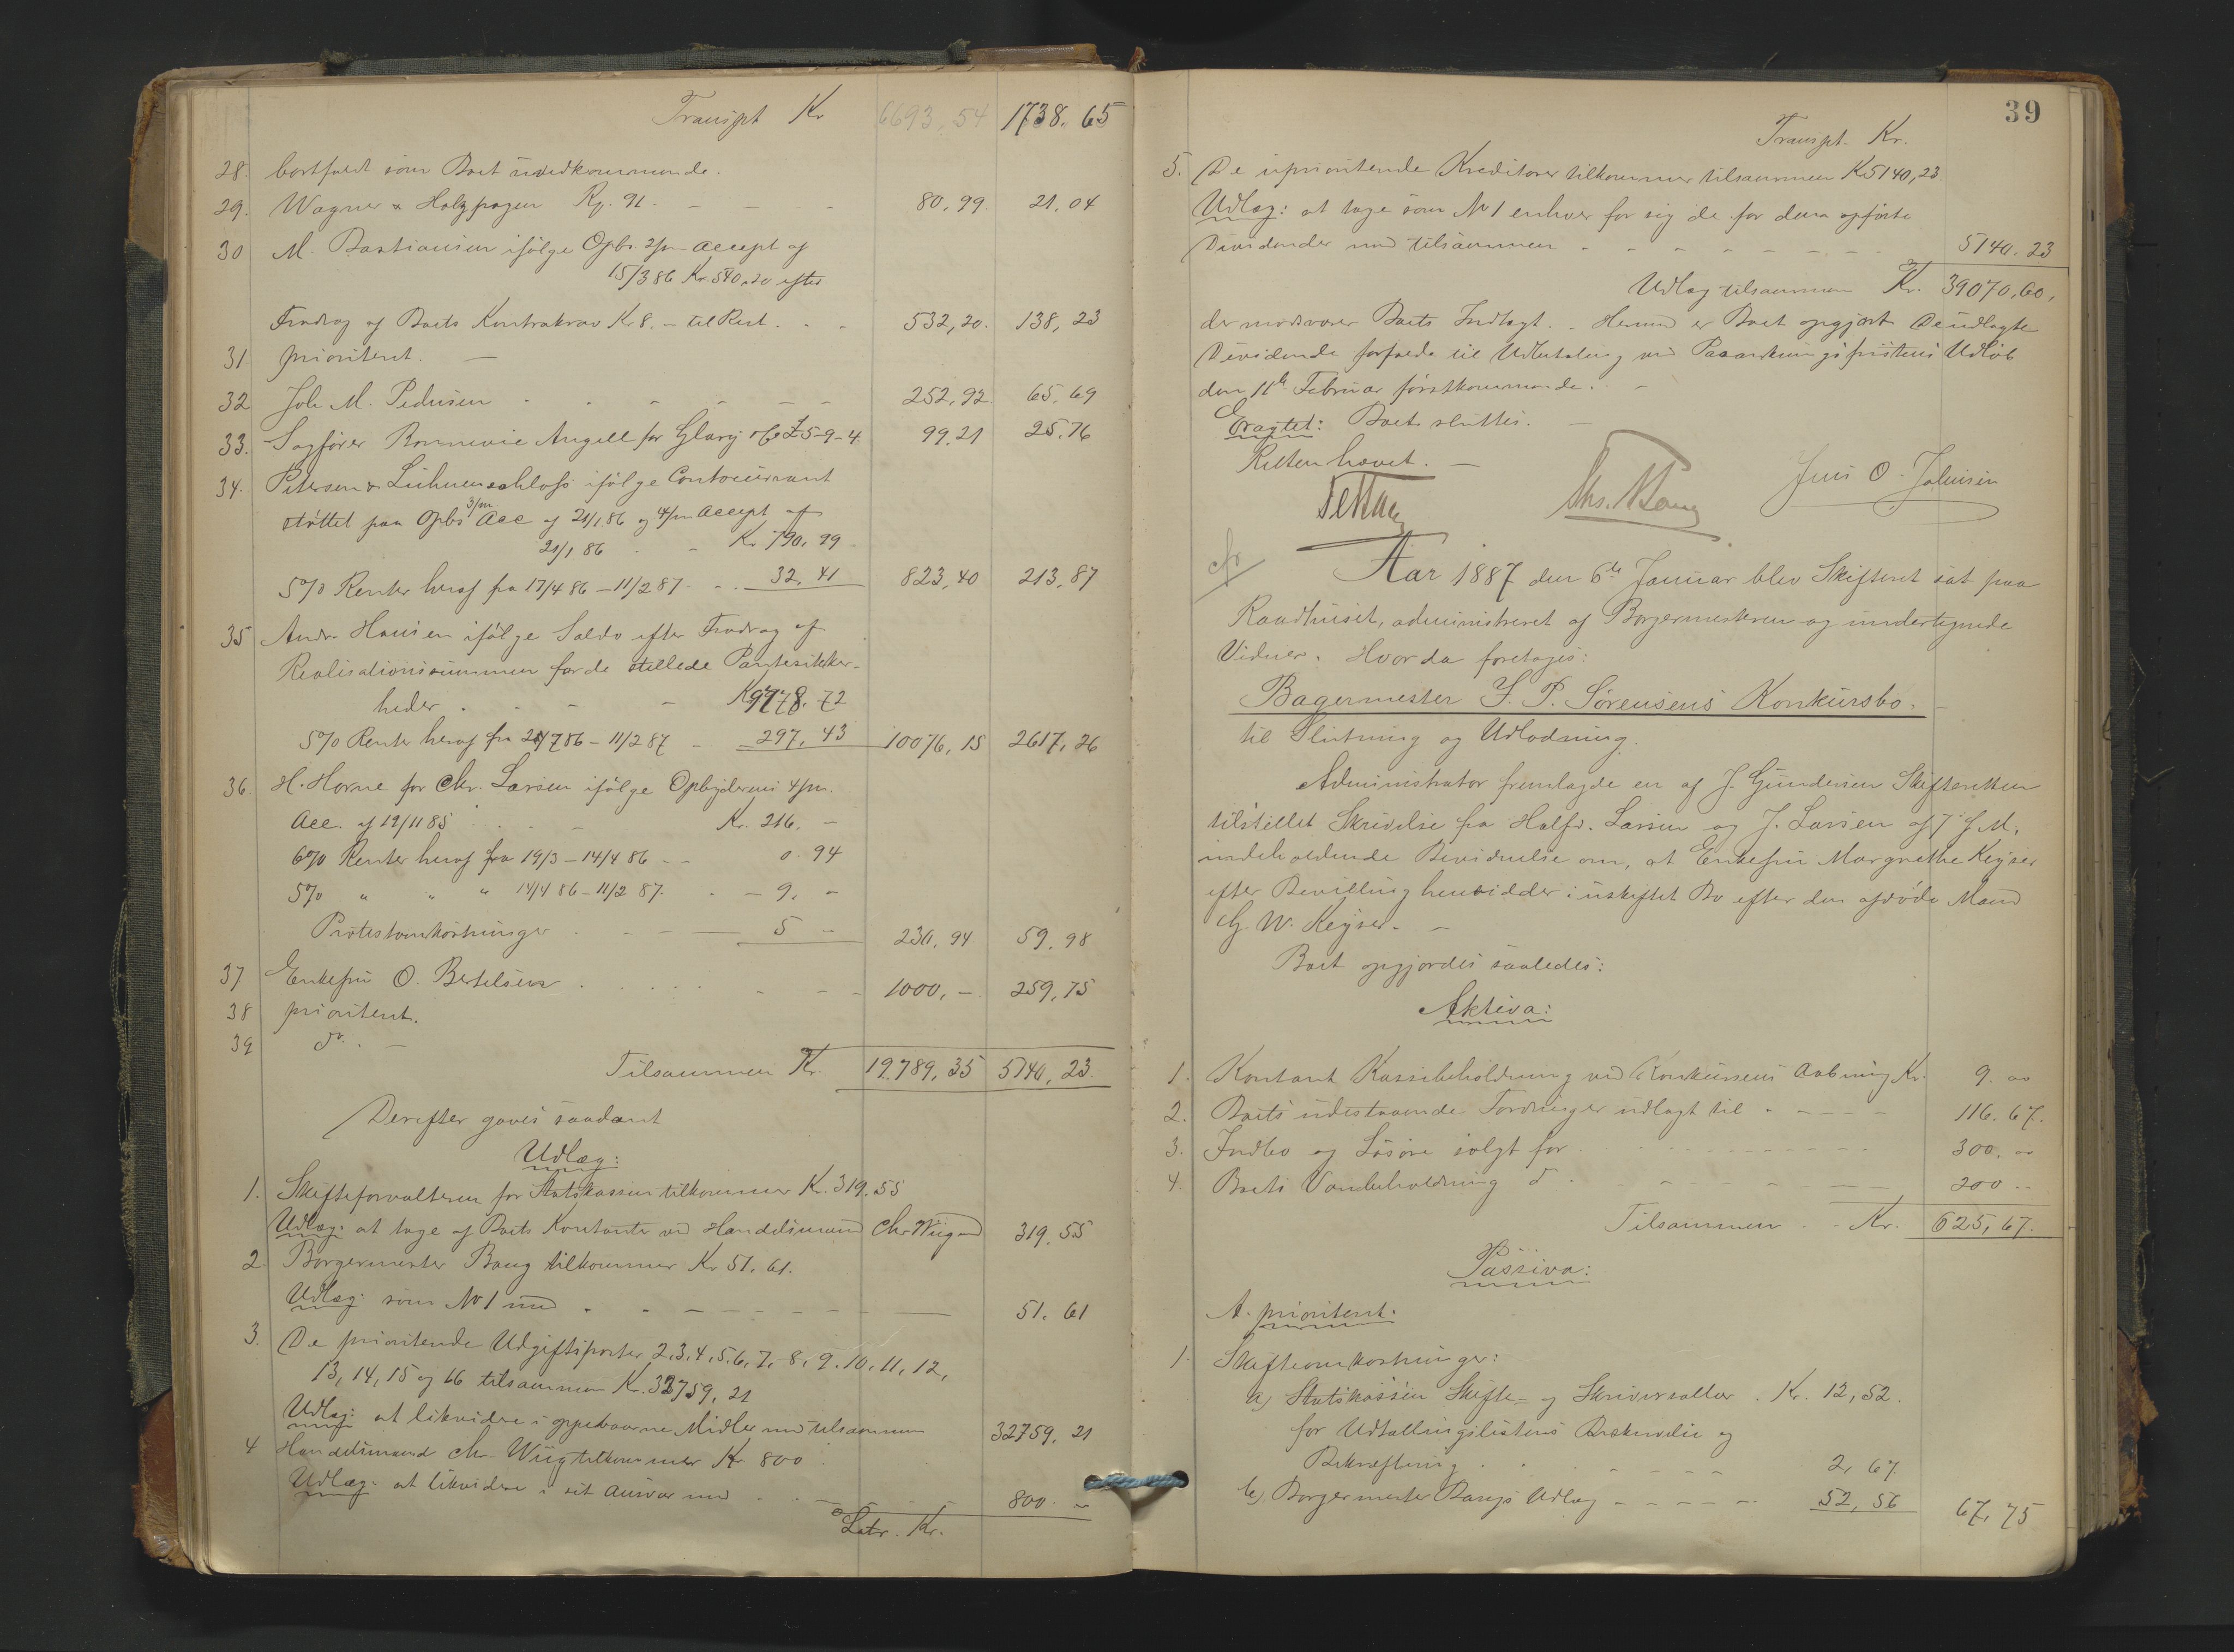 Transpt Kr 6693,54 1738.65
28. bortfaldt som Boet uvedkommende.
29. Wagner & Holzhagen Rg. 91. - - - 80,99. 21.04
30 M. Bastiansen ifølge Opbs. 2/m accept af
15/3 86 Kr. 540.20 efter
Fradrag af Boets Kontrakrav Kr 8. - til Rest . . - 532,20. 138,23
31. prioritert. -
32 Joh M. Pedersen - - - - - - 252,92. 65,69
33. Sagfører Bonnevie Angell for Glavy £ 5-9-4. 99.21 25.76
34. Petersen & Lühnenschloss ifølge Contocurrant
støttet paa Opbs 3/m Acc af 21/1 86 og 4/m accept af
21/1 86 - - Kr. 790.99
5% Renter heraf fra 17/4 86 - 11/2 87 - . 32,41 823,40 213,87
35 Andr. Hansen ifølge Saldo efter Fradrag af
Realisationssummen for de stillede Pantesikker-
heder . - - - Kr 9778.72
5% Renter heraf fra 20/7 86 - 11/2 87 - 297,43 10076,15 2617,26
36. H. Horne for Chr. Larsen ifølge Opbyderens 4/m.
Acc. af 19/11 85 . . - Kr. 216. -
6% Renter heraf fra 19/3 - 14/4 86 - - 0.94
5% " " " 14/4 86 - 11/2 87. . - 9. -
Protestomkostninger . - - - 5 - 230,94 59,98
37 Enkefru O. Bertelsen . . . . - - - 1000,- 259,75
38 prioritert.
39 do. -
Tilsammen Kr. 19789,35 5140,23.
Derefter gaves saadant
Udlæg:
1. Skifteforvalteren for Statskassen tilkommer Kr. 319.55
Udlæg: at tage af Boets Kontanter ved Handelsmand Chr Wiig med 319.55
2. Borgermester Bang tilkommer Kr 51.61.
Udlæg: som No 1 med - - - - - - 51.61
3. De prioriterte Udgiftsposter 2,3,4,5,6,7,8,9,10,11,12,
13, 14, 15 og 16 tilsammen Kr. 32759,21
Udlæg: at likvidere i oppebaarne Midler med tilsammen 32759,21
4 Handelsmand Chr. Wiig tilkommer Kr 800
Udlæg: at likvidere i sit Ansvar med - - - 800. -
Latr. Kr.
39
Transpt. Kr.
5. De upriorterte Kreditorer tilkommer tilsammen Kr 5140,23
Udlæg: at tage som No 1 enhver for sig de for dem opførte
Dividender med tilsammen - - - - - - 5140.23
Udlæg tilsammen Kr. 39070,60.
der modsvarer Boets Indtægt. - Hermed er Boet opgjort. De udlagte
Dividende forfalde til Udbetaling ved Paaankningsfristens Udløb
den 11te Februar førstkommende. -
Eragtet: Boet sluttes. -
Retten hævet. -
Chr. Bang Jens O. Johnsen
cfr
Aar 1887 den 6te Januar blev Skifteret sat paa
Raadhuset, administreret af Borgermesteren og undertegnede
Vidner. Hvor da foretages:
Bagermester J. P. Sørensens Konkursbo.
til Slutning og Udlodning.
Administrator fremlagde en af J. Gundersen Skifteretten
tilstillet Skrivelse fra Halfd. Larsen og J. Larsen af 7 f. M.
indeholdende Bevidnelse om, at Enkefru Margrethe Keyser
efter Bevilling hensidder i uskiftet Bo efter den afdøde Mand
G. W. Keyser. -
Boet opgjordes saaledes:
Aktiva:
1. Kontant Kassebeholdning ved Konkursens Aabning Kr. 9.00
2. Boets udestaaende Fordringer udlagt til - - - - - 116.67.
3. Indbo og Løsøre solgt for - - - - - - 300.00
4. Boets Varebeholdning do - - - - - - 200 --
Tilsammen - - Kr. 625,67.
Passiva:
A. prioritert.
1. Skifteomkostninger:
a) Statskassen Skifte- og Skriversaller . Kr. 12,52.
for Udtællingslistens Beskrivelse og
Bekræftning . . - - - - 2,67.
b) Borgermester Bangs Udlæg - - - - - 52,56 67,75